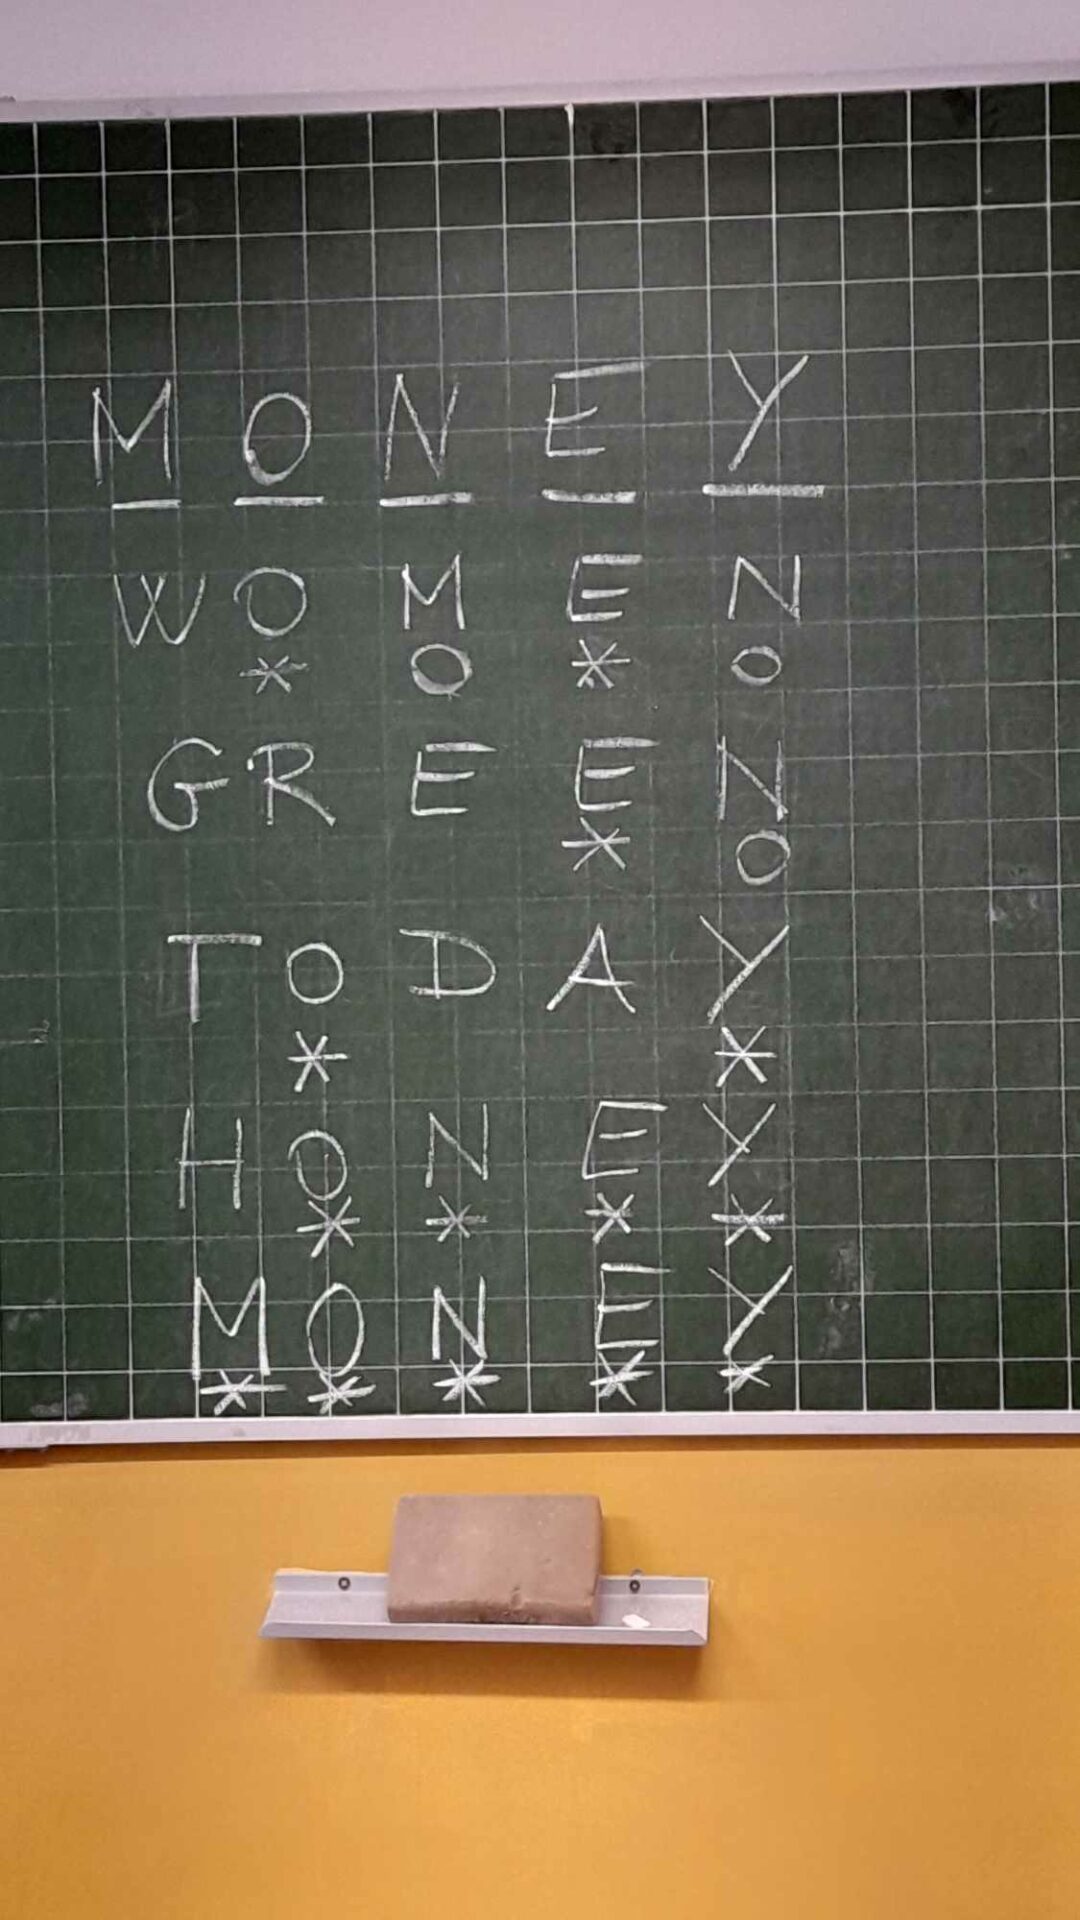 M O N E Y
W O M E N
* O * O
G R E E N
* O
T O D A Y
* *
H O N E Y
* * * *
M O N E Y
* * * * *